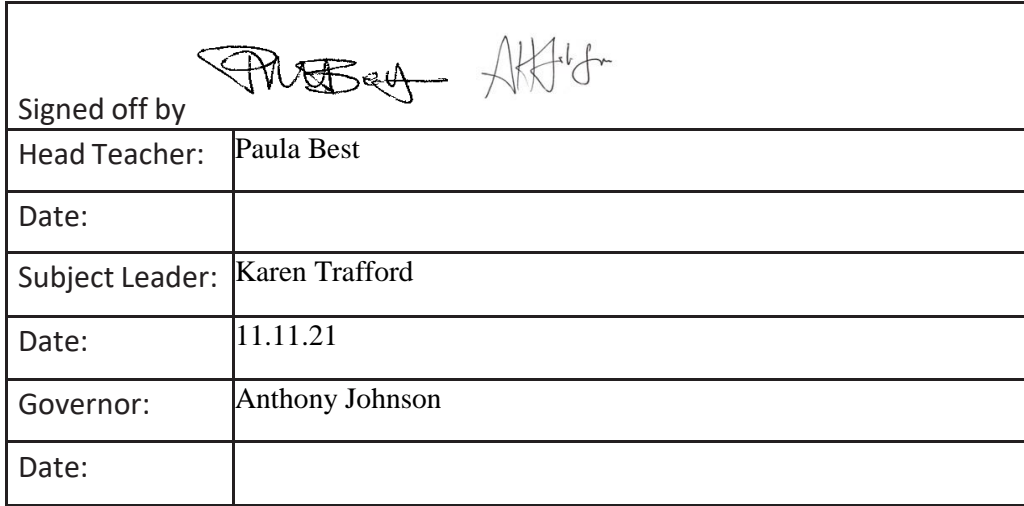 Signed off by
Head Teacher: Paula Best
Date:
Subject Leader: Karen Trafford
Date: 11.11.21
Governor: Anthony Johnson
Date: